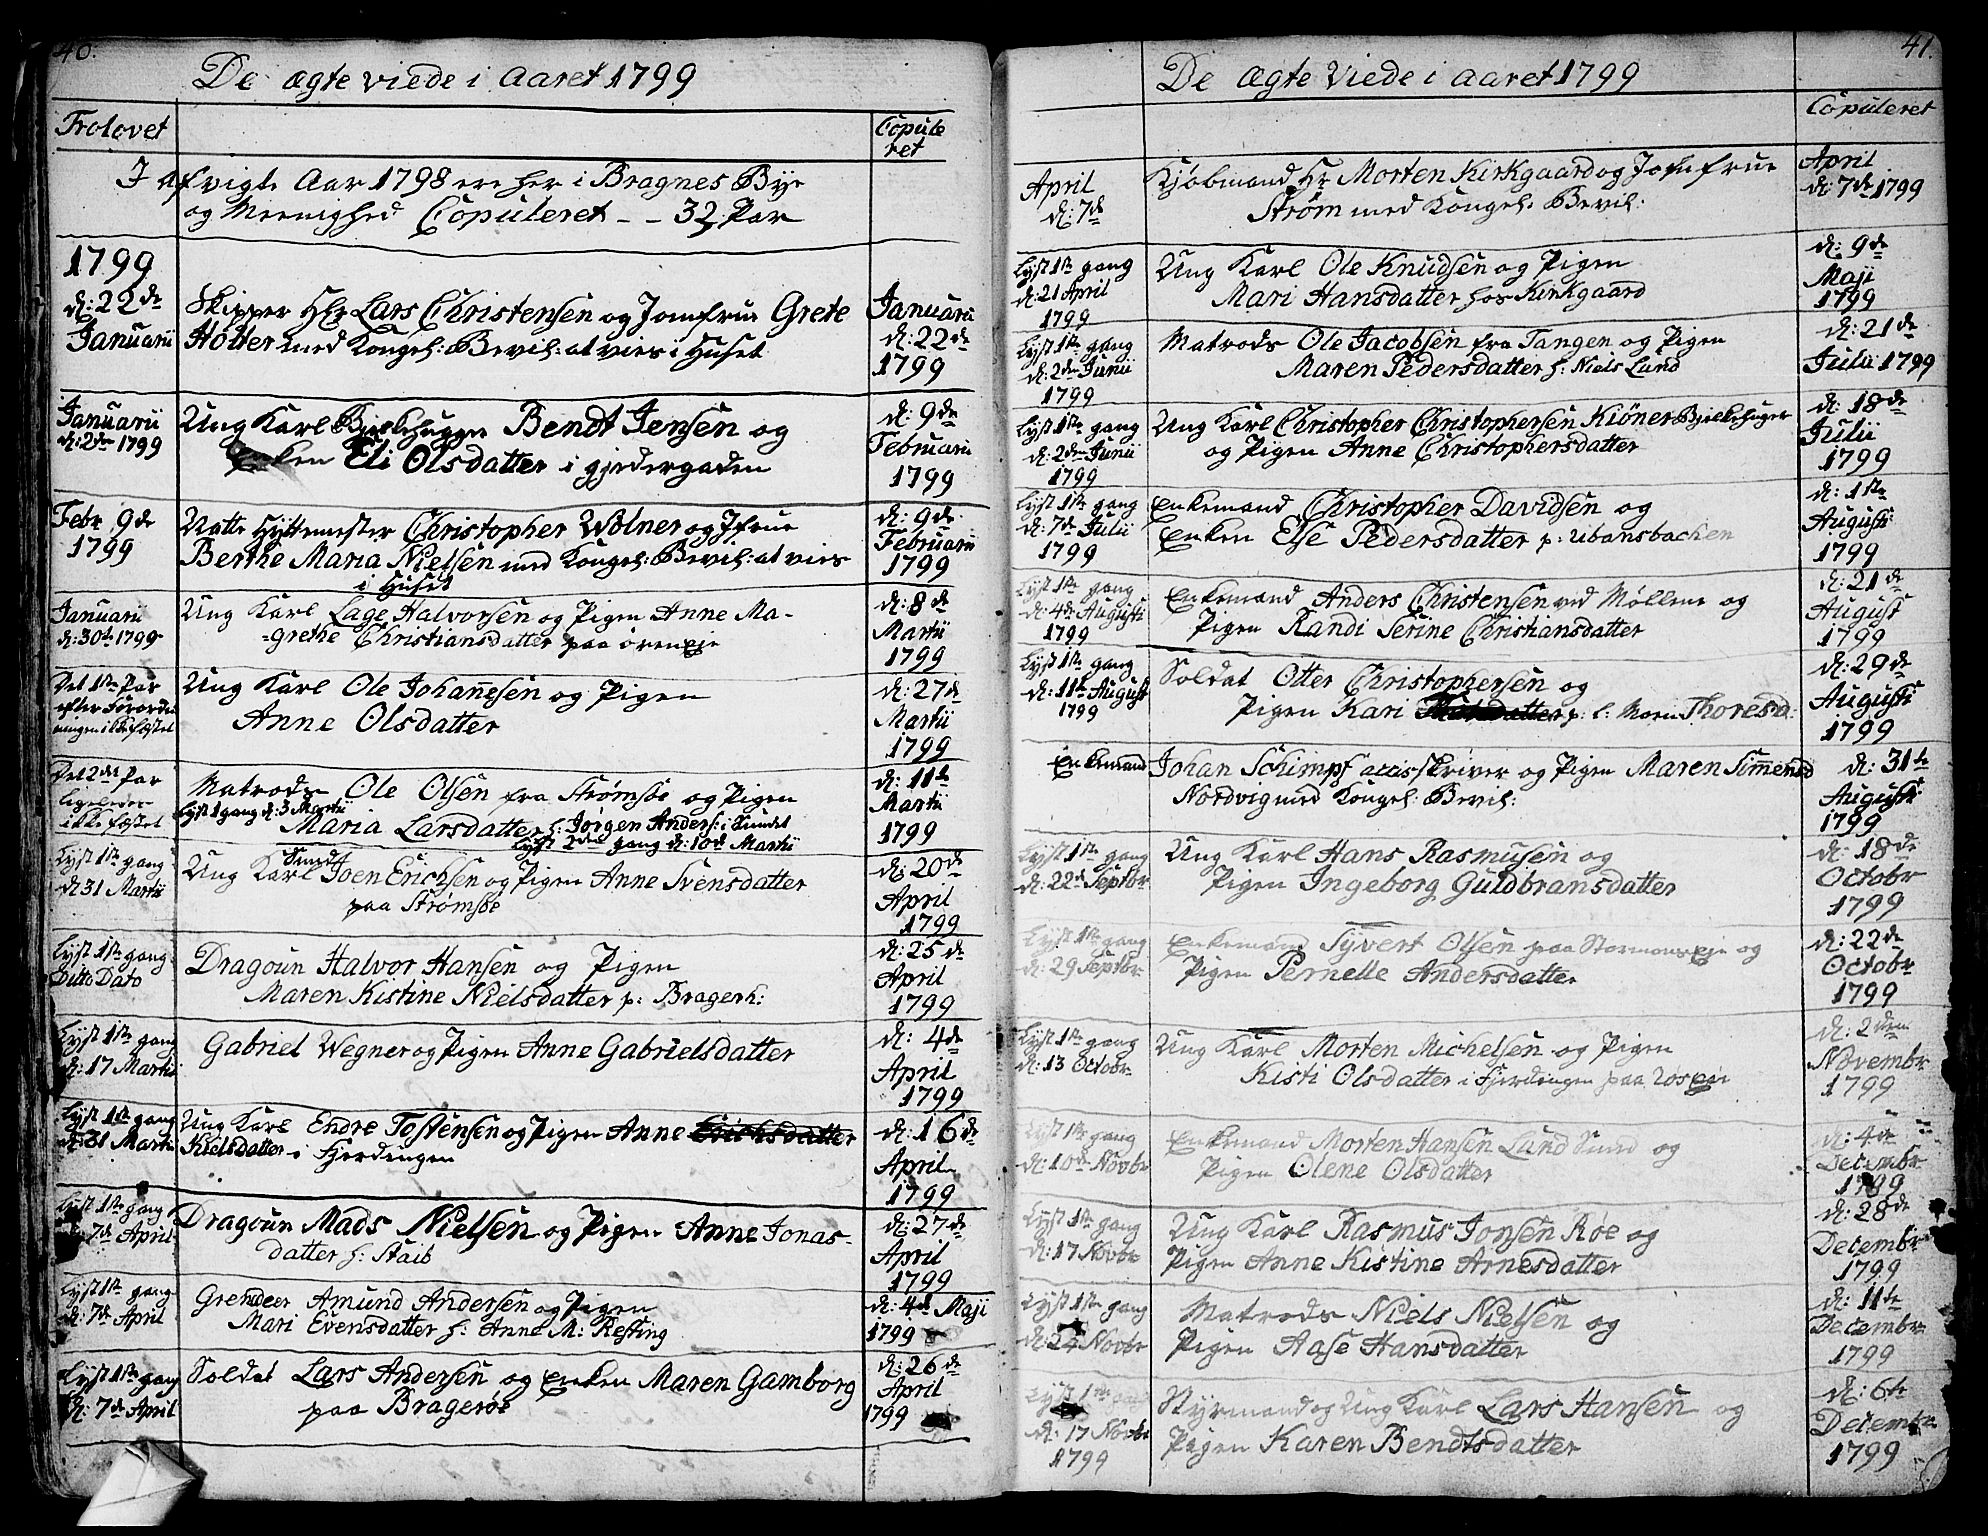 40.
De ægte viede i Aaret 1799
Trolovet
Copule
ret
I afvigte Aar 1798 ere her i Bragnes Bye
og Meenighed Copuleret - - 32 Par
1799
d: 22de
Januarii
Skipper Hr Lars Christensen og Jomfrue Grete
Høtter med Kongel: Bevil: at vies i Huset
Januarii
d: 22de
1799
Januarii
d: 2den 1799
Ung Karl Bendt Jensen og
Enken Eli Olsdatter i gjedergaden
d: 9de
Februarii
1799
Febr 9de
1799
Natte Hyttemester Christopher Wolner og Jfrue
Berthe Maria Nielsen med Kongel: Bevil: at vies
i Huset
d: 9de
Februarii
1799
Januarii
d: 30te 1799
Ung Karl Lage Halvorsen og Pigen Anne Ma-
-grethe Christiansdatter paa øren Eje
d: 8de
Martii
1799
Det 1ste Par
efter Forord
ningen ikke fæstet
Ung Karl Ole Johannesen og Pigen
Anne Olsdatter
d: 27de
Martii
1799
Det 2det Par
ligeledes
ikke fæstet
Matrods Ole Olsen fra Strømsøe og Pigen
Lyst 1 gang d: 3 Martii
Maria Larsdatter h: Jorgen Anders: i Sundet
Lyst 2den gang d: 10de Martii
d: 11te
Martii
1799
Lyst 1ste gang
d: 31 Martii
Sund
Ung Karl Joen Erichsen og Pigen Anne Svensdatter
paa Strømsøe
d: 20de
April
1799
Lyst 1ste gang
Ditto Dato
Dragoun Halvor Hansen og Pigen
Maren Kistine Nielsdatter p: Bragerh:
d: 25de
April
1799
Lyst 1ste gang
d: 17 Martii
Gabriel Wegner og Pigen Anne Gabrielsdatter
d: 4de
April
1799
Lyst 1ste gang
d: 31 Martii
Ung Karl Endre Tostensen og Pigen Anne Erichsdatter
Nielsdatter i Fjerdingen
d: 16de
April
1799
Lyst 1ste gang
d: 7de April
Dragoun Mads Nielsen og Pigen Anne Jonas-
datter h: Staib
d: 27de
April
1799
Lyst 1ste gang
d: 7de April
Grendeer Amund Andersen og Pigen
Mari Evensdatter h: Anne M: Resting
d: 4de Maji
1799
Lyst 1ste gang
d: 7de April
Soldat Lars Andersen og Enken Maren Gamborg
paa Bragerøe
d: 26de
April
1799
41.
De ægte Viede i Aaret 1799
Copuleret
April
d: 7de
Kjøbmand Hr Morten Kirkgaard og Jomfrue
Strøm med Kongel: Bevil:
April
d: 7de 1799
Lyst 1ste gang
d: 21 April
1799
Ung Karl Ole Knudsen og Pigen
Mari Hansdatter hos Kirkgaard
d: 9de
Maji
1799
Lyst 1ste gang
d: 2den Junii
1799
Matrods Ole Jacobsen fra Tangen og Pigen
Maren Pedersdatter h: Niels Lund
d: 21de
Julii 1799
Lyst 1ste gang
d: 2den Junii
1799
Ung Karl Christopher Christophersen Kiöner Byeleskuger
og Pigen Anne Christophersdatter
d: 18de
Julii
1799
Lyst 1ste gang
d: 7de Julii
1799
Enkemand Christopher Davidsen og
Enken Else Pedersdatter p: Ubansbachen
d: 1ste
Augusti
1799
Lyst 1ste gang
d: 4de Augusti
1799
Enkemand Anders Christensen ved Møllene og
Pigen Randi Serine Christiansdatter
d: 21de
August
1799
Lyst 1ste gang
d: 11te August
1799
Soldat Otter Christophersen og
Pigen Kari p: l: Moen Thoresd:
d: 29de
Augusti
1799
Enkemand Johan Schimpf accis-skriver og Pigen Maren Simmensd
Nordvig med Kongel: Bevil:
d: 31te
Augusti
1799
Lyst 1ste gang
d: 22de Septbr
Ung Karl Hans Rasmusen og
Pigen Ingeborg Guldbramsdatter
d: 18de
Octobr
1799
Lyst 1ste gang
d: 29 Septbr
Enkemand Syvert Olsen paa Stormoens Eje og
Pigen Pernelle Andersdatter
d: 22de
Octobr
1799
Lyst 1ste gang
d: 13 Octobr
Ung Karl Morten Michelsen og Pigen
Kisti Olsdatter i Fjerdingen paa
d: 2den
Novembr
1799
Lyst 1ste gang
d: 10de Novbr
Enkemand Morten Hansen Lund Sund og
Pigen Olene Olsdatter
d: 4de
Decembr
1799
Lyst 1ste gang
d: 17 Novbr
Ung Karl Rasmus Jonsen Røe og
Pigen Anne Kistine Arnesdatter
d: 28de
Decembr
1799
Lyst 1ste gang
d: 24 Novbr
Matrods Niels Nielsen og
Pigen Aase Hansdatter
d: 11te
Decembr
1799
Lyst 1ste gang
d: 17 Novbr
1799
Styrmand og Ung Karl Lars Hansen og
Pigen Karen Bendtsdatter
d: 6te
Decembr
1799